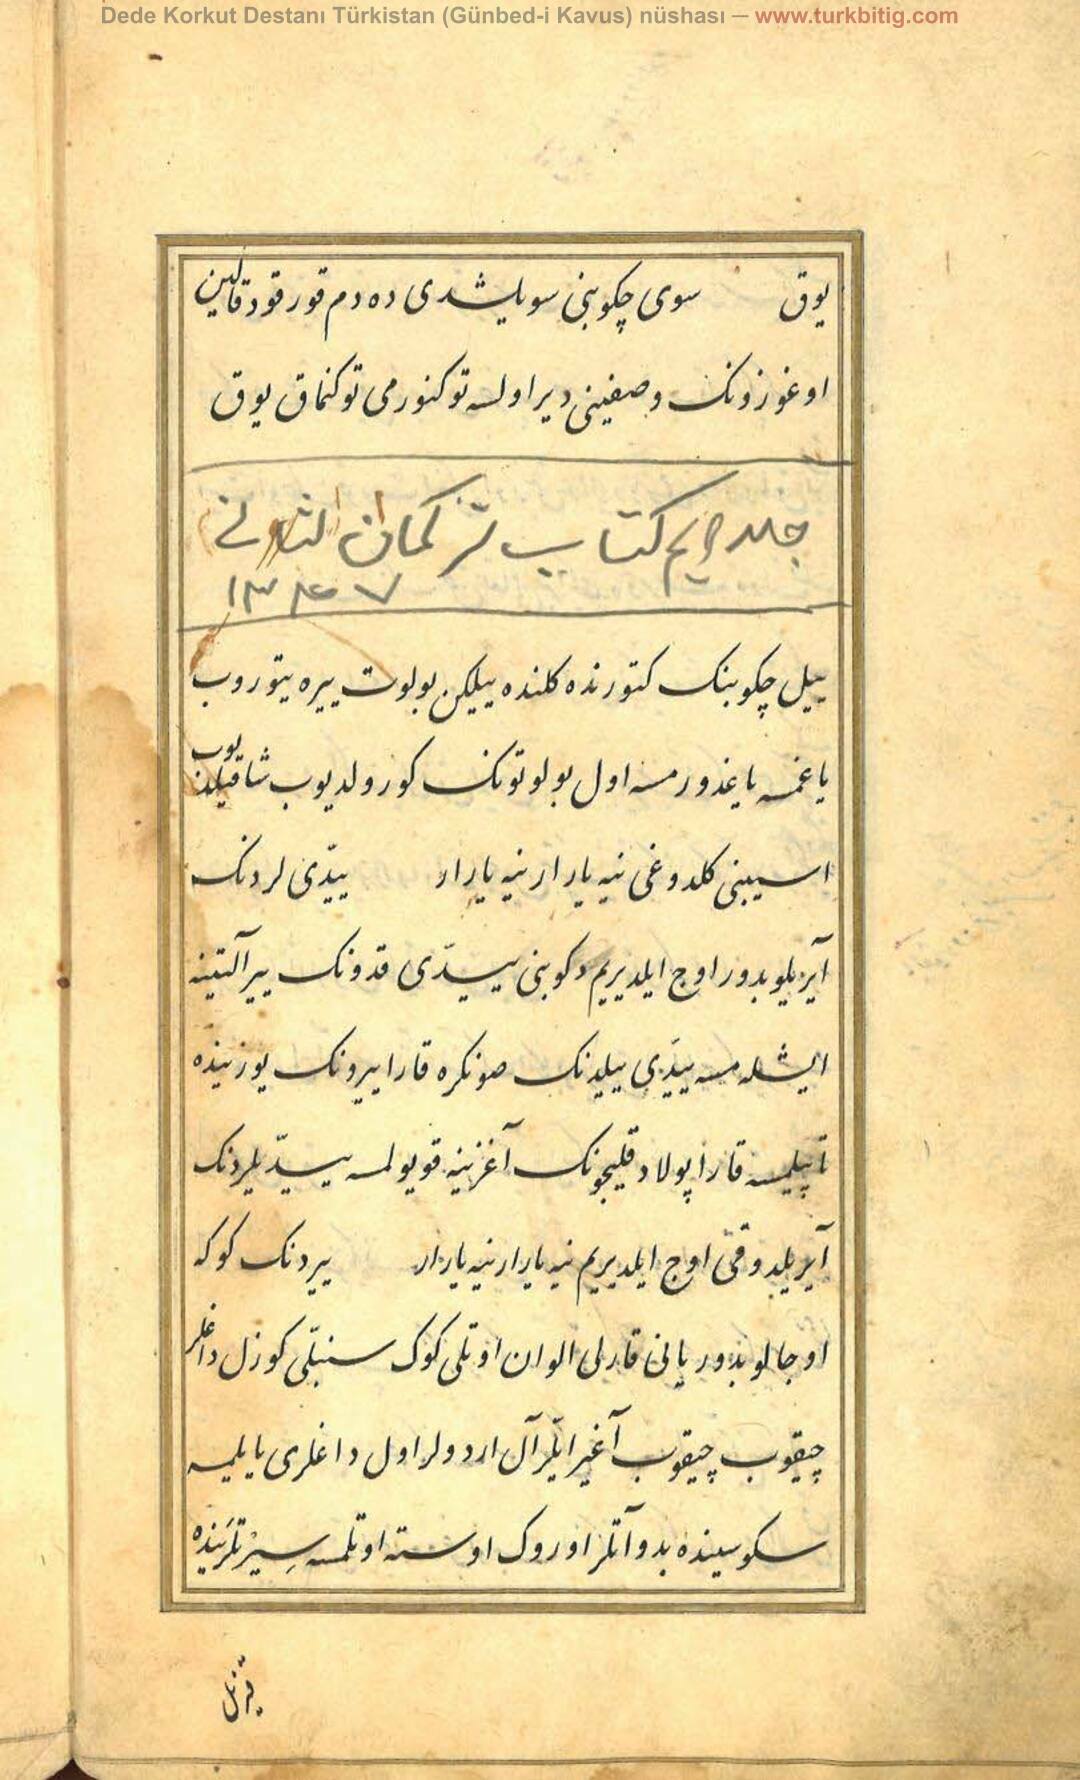 Dede Korkut Destanı Türkistan (Günbed-i Kavus) nüshası — www.turkbitig.com
یوق سوی چکوبنی سویلیشدی ده دم قورقود قالین
اوغوزونک وصفینی دیر اولسه توکنورمی توکنماق یوق
جلد دویم کتاب ترکمان الثانی
۱۳۴۷
ییل چکوبنک کتورنده کلنده ییلیکن بولوت ییره یتوروب
یاغمسه یاغدورمسه اول بولوتونک کورولدیوب شاقیلدیوب
اسیبنی کلدوغی نیه یارار نیه یارار ییدّی لردنک
آیریلوبدور اوج ایلدیریم دکوبنی ییدّی قدونک ییر آلتینه
ایشله مسه ییدّی ییلدنک صونکره قارا ییرونک یوزینده
تاپیلمسه قارا پولاد قلیجونک آغزینه قویولمسه ییدّیلردنک
آیریلدوقی اوج ایلدیریم نیه یارار نیه یارار ییردنک کوکه
اوجالوبدور یانی قارلی الوان اوتلی کوک سنبلّی کوزل داغلر
چیقوب چیقوب آغیر ایلّر آل اردولر اول داغلری یایلمسه
سکوسینده بدو آتلر اوروک اوسته اوتلمسه سیرتلرینده